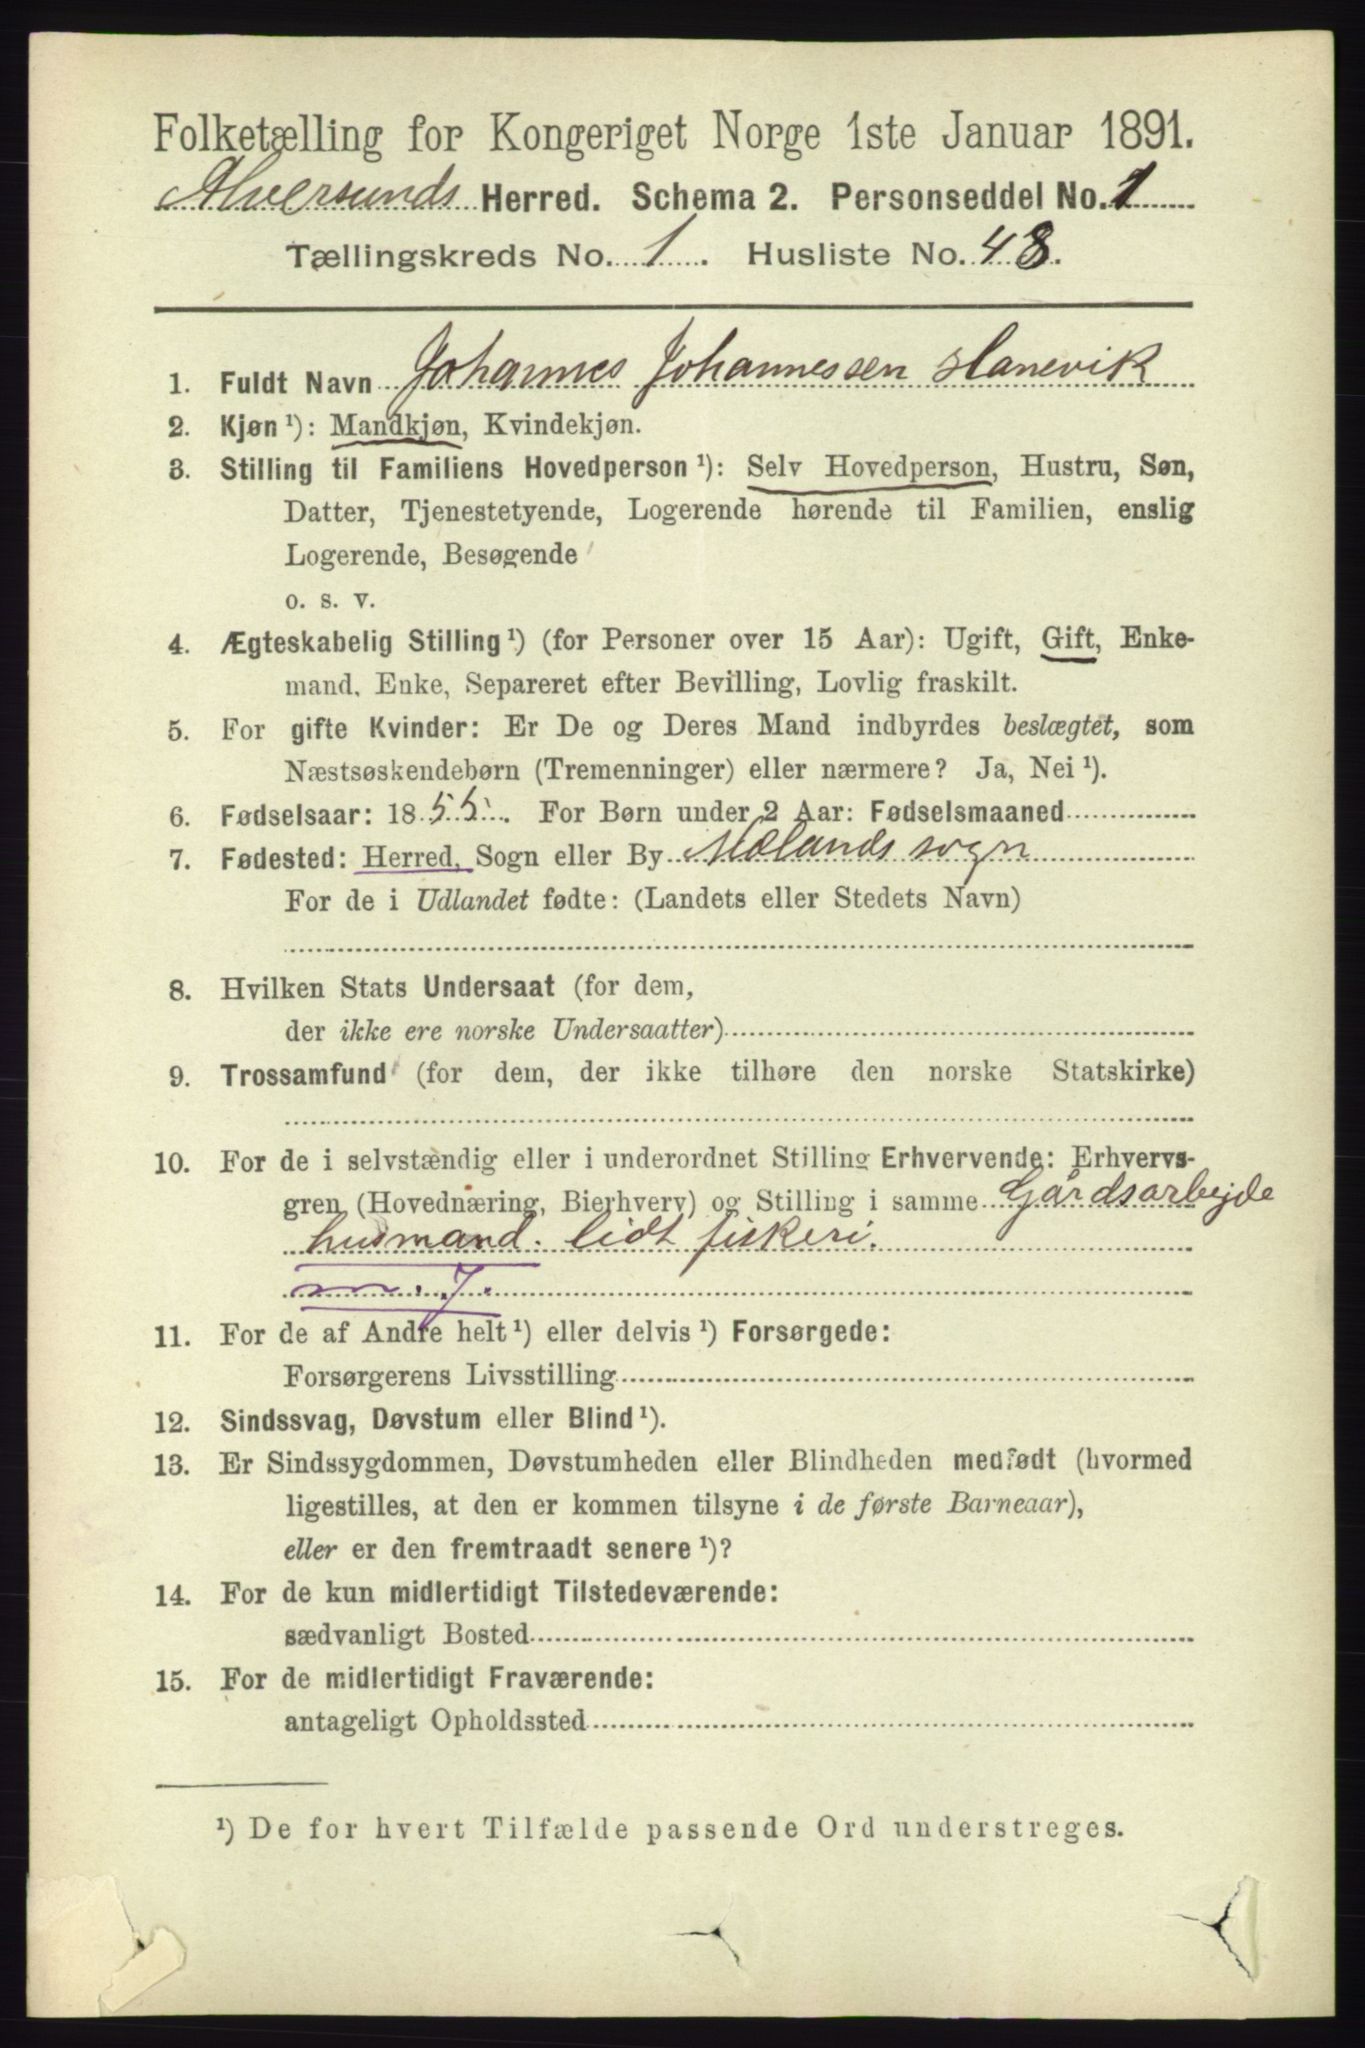 Folketælling for Kongeriget Norge 1ste Januar 1891.
Alversunds Herred. Schema 2. Personseddel No. 1
Tællingskreds No. 1. Husliste No. 48.
1. Fuldt Navn Johannes Johannessen Hanevik
2. Kjøn¹): Mandkjøn, Kvindekjøn.
3. Stilling til Familiens Hovedperson¹): Selv Hovedperson, Hustru, Søn,
Datter, Tjenestetyende, Logerende hørende til Familien, enslig
Logerende, Besøgende
o. s. v.
4. Ægteskabelig Stilling¹) (for Personer over 15 Aar): Ugift, Gift, Enke-
mand, Enke, Separeret efter Bevilling, Lovlig fraskilt.
5. For gifte Kvinder: Er De og Deres Mand indbyrdes beslægtet, som
Næstsøskendebørn (Tremenninger) eller nærmere? Ja, Nei¹).
6. Fødselsaar: 1855. For Børn under 2 Aar: Fødselsmaaned
7. Fødested: Herred, Sogn eller By Mølands sogn
For de i Udlandet fødte: (Landets eller Stedets Navn)
8. Hvilken Stats Undersaat (for dem,
der ikke ere norske Undersaatter)
9. Trossamfund (for dem, der ikke tilhøre den norske Statskirke)
10. For de i selvstændig eller i underordnet Stilling Erhvervende: Erhvervs-
gren (Hovednæring, Bierhverv) og Stilling i samme Gårdsarbejde
husmand. lidt fiskeri.
m. J.
11. For de af Andre helt¹) eller delvis¹) Forsørgede:
Forsørgerens Livsstilling
12. Sindssvag, Døvstum eller Blind¹).
13. Er Sindssygdommen, Døvstumheden eller Blindheden medfødt (hvormed
ligestilles, at den er kommen tilsyne i de første Barneaar),
eller er den fremtraadt senere¹)?
14. For de kun midlertidigt Tilstedeværende:
sædvanligt Bosted
15. For de midlertidigt Fraværende:
antageligt Opholdssted
¹) De for hvert Tilfælde passende Ord understreges.